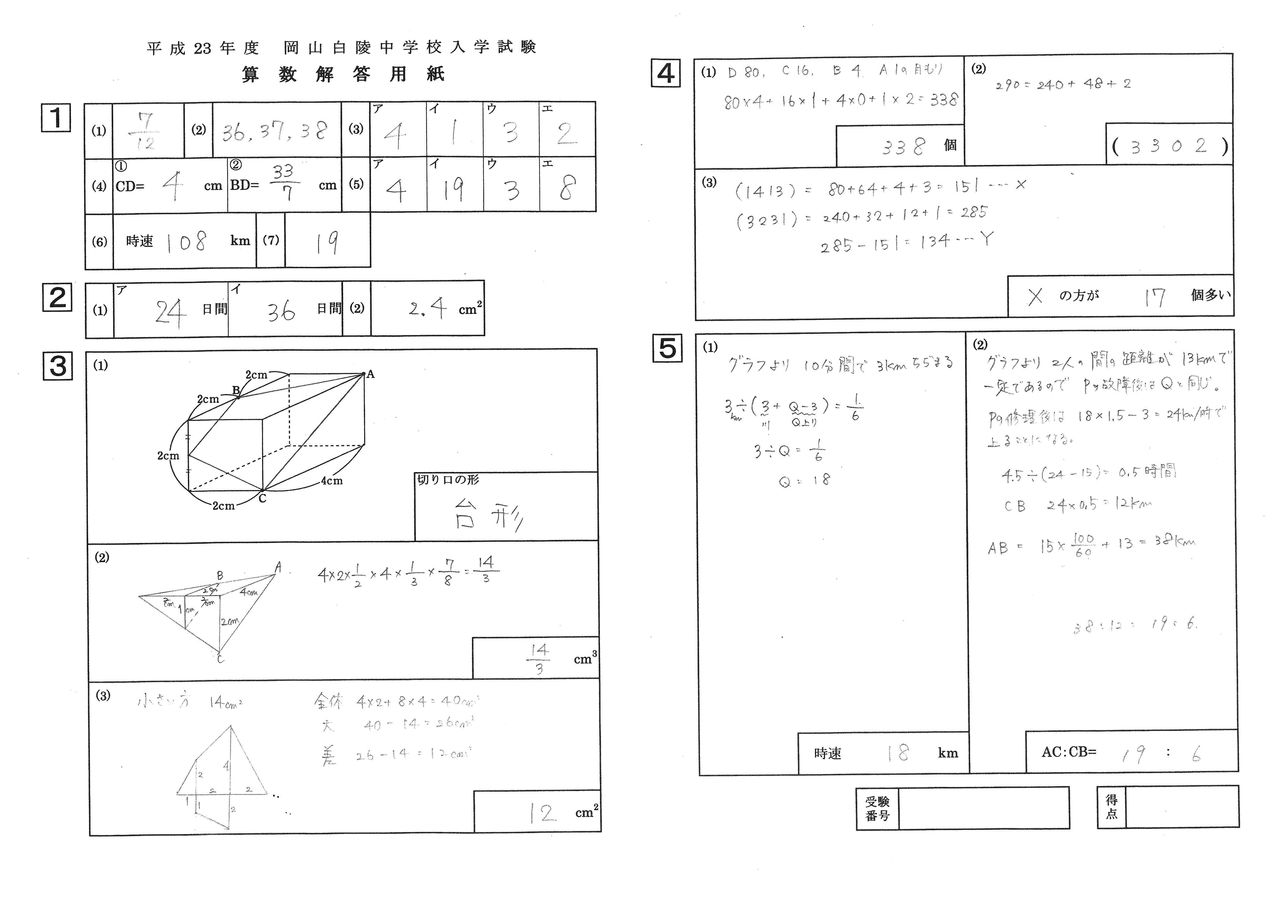 平成23年度 岡山白陵中学校入学試験
算数解答用紙
1
(1) 7/12 (2) 36, 37, 38 (3) ア 4 イ 1 ウ 3 エ 2
(4) ① CD= 4 cm ② BD= 33/7 cm (5) ア 4 イ 19 ウ 3 エ 8
(6) 時速 108 km (7) 19
2
(1) ア 24 日間 イ 36 日間 (2) 2.4 cm²
3
(1)
2cm
A
B
2cm
2cm
4cm
2cm
C
切り口の形
台形
(2)
4×2×1/2×4×1/3×7/8=14/3
A
B
2cm
4cm
1cm
2cm
C
14/3 cm³
(3) 小さい方 14cm²
全体 4×2+8×4=40cm²
大 40-14=26cm²
差 26-14=12cm²
2
4
1
2
2
1
2
12 cm²
4
(1) D 80, C 16, B 4, A 1の目もり
80×4+16×1+4×0+1×2=338
338 個
(2)
290=240+48+2
(3302)
(3)
(1413) = 80+64+4+3=151…X
(3231) = 240+32+12+1=285
285-151=134…Y
X の方が 17 個多い
5
(1)
グラフより 10分間で3kmちぢまる
3÷(3+Q-3)=1/6
km 川 Q上り
3÷Q=1/6
Q=18
時速 18 km
(2)
グラフより 2人の間の距離が 13kmで
一定であるので Pの故障後はQと同じ。
Pの修理後は 18×1.5-3=24km/時で
上ることになる。
4.5÷(24-15)=0.5時間
CB 24×0.5=12km
AB = 15×100/60+13=38km
38:12= 19:6.
AC:CB= 19 : 6
受験
番号
得
点